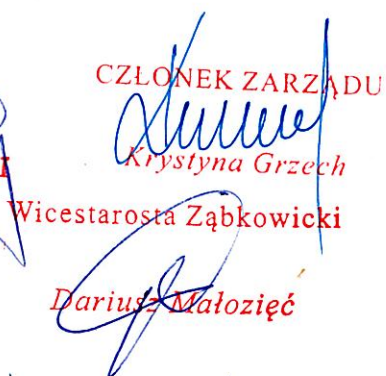 CZŁONEK ZARZĄDU
Krystyna Grzech
Wicestarosta Ząbkowicki
Dariusz Małozięć